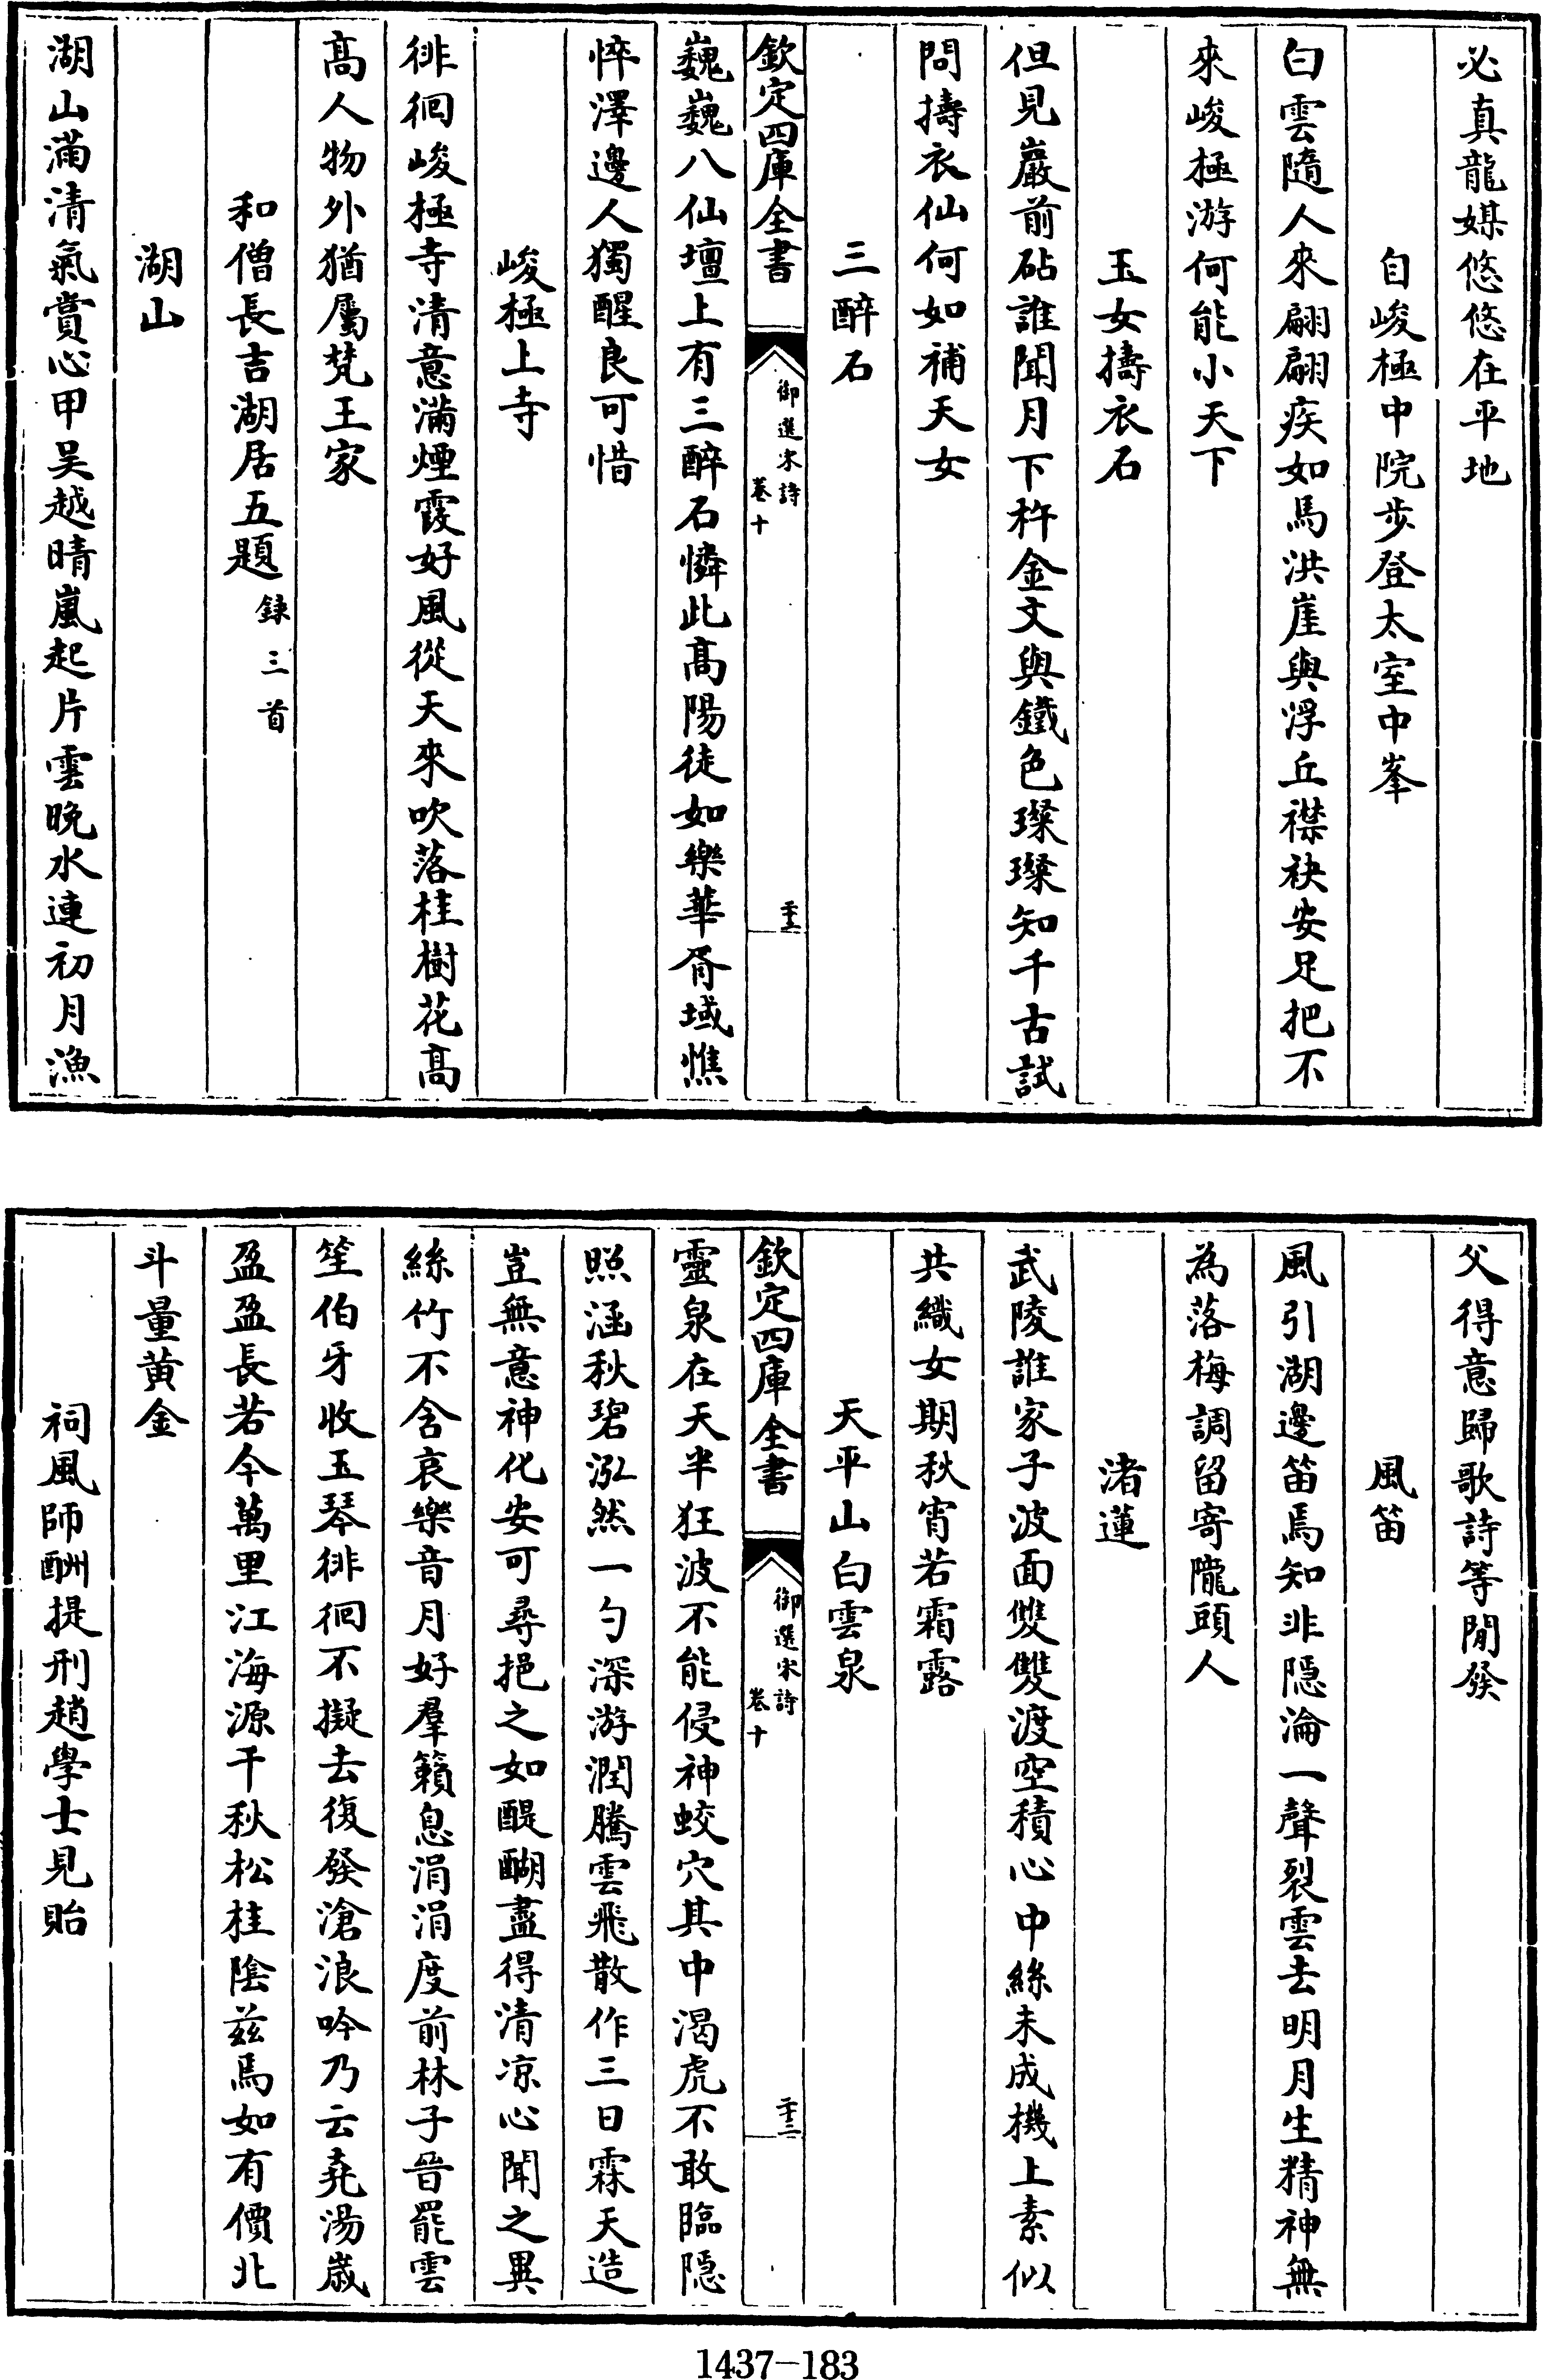 必真龍媒悠悠在平地
自峻極中院步登太室中峯
白雲隨人來翩翩疾如馬洪崖與浮丘襟袂安足把不
來峻極游何能小天下
玉女擣衣石
但見巖前砧誰聞月下杵金文與鐵色璨璨知千古試
問擣衣仙何如補天女
三醉石
欽定四庫全書
御選宋詩
卷十
巍巍八仙壇上有三醉石憐此髙陽徒如樂華胥域憔
悴澤邊人獨醒良可惜
峻極上寺
徘徊峻極寺清意滿煙霞好風從天來吹落桂樹花髙
髙人物外猶屬梵王家
和僧長吉湖居五題錄三首
湖山
湖山滿清氣賞心甲吴越晴嵐起片雲晚水連初月漁
父得意歸歌詩等閒發
風笛
風引湖邊笛焉知非隱淪一聲裂雲去明月生精神無
為落梅調留寄隴頭人
渚蓮
武陵誰家子波面雙雙渡空積心中絲未成機上素似
共織女期秋宵若霜露
天平山白雲泉
欽定四庫全書
御選宋詩
卷十
靈泉在天半狂波不能侵神蛟穴其中渴虎不敢臨隱
照涵秋碧泓然一勺深游潤騰雲飛散作三日霖天造
豈無意神化安可尋挹之如醍醐盡得清凉心聞之異
絲竹不含哀樂音月好羣籟息涓涓度前林子晉罷雲
笙伯牙收玉琴徘徊不擬去復發滄浪吟乃云堯湯歲
盈盈長若今萬里江海源千秋松桂陰兹焉如有價北
斗量黄金
祠風師酬提刑趙學士見貽
1437-183